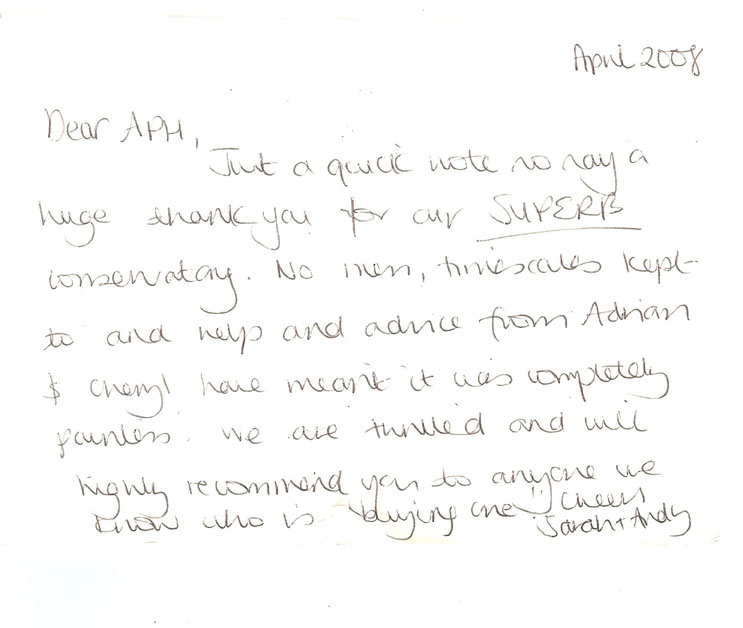 April 2008
Dear APH,
Just a quick note to say a
huge thank you for our SUPERB
conservatory. No mess, timescales kept
to and help and advice from Adrian
& Cheryl have meant it was completely
painless. We are thrilled and will
highly recommend you to anyone we
know who is buying one!! Cheers
Sarah + Andy